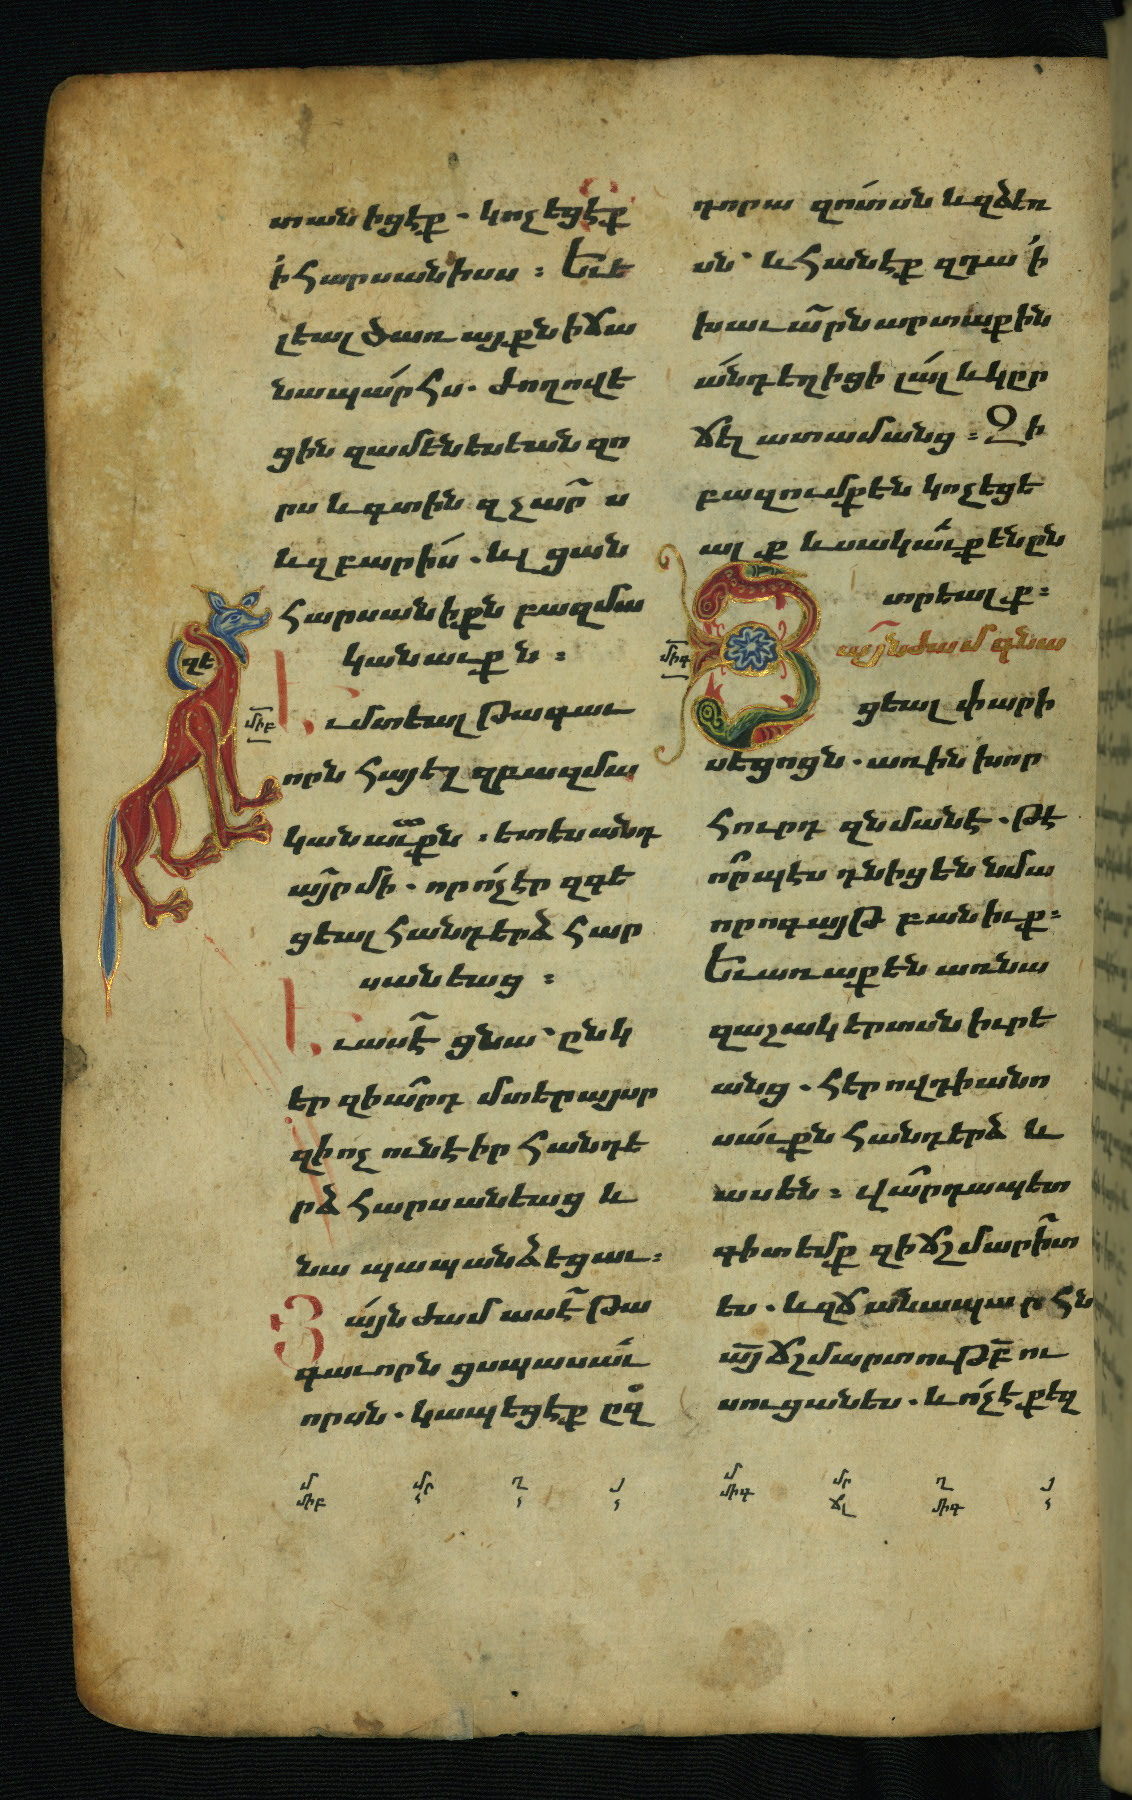 տանիցէք. կոչեցէք
ի հարսանիսս։ Եւ ե
լեալ ծառայքն ի ճա
նապարհս. ժողովե
ցին զամենեսեան զո
րս և գտին զչարս
և զբարիս. և լցան
հարսանիքն բազմա
կանաւքն։
Եւ մտեալ թագաւ
որն հայել զբազմա
կանաւքն. ետես անդ
այր մի. որ ոչ էր զգե
ցեալ հանդերձ հար
սանեաց։
Եւ ասէ ցնա՝ ընկ
եր զիարդ մտեր այսր
զի ոչ ունէիր հանդե
րձ հարսանեաց և
նա պապանձեցաւ։
Յայնժամ ասէ թա
գաւորն ցսպասաւ
որսն. կապեցէք ըզ
զե
միբ
դորա զոտսն և զձեռ
սն՝ և հանէք զդա ի
խաւարն արտաքին
անդ եղիցի լալ և կըր
ճել ատամանց։ Զի
բազումք են կոչեցե
ալք և սակաւք են ըն
տրեալք։
միգ
Յայնժամ գնա
ցեալ փարի
սեցոցն. առին խոր
հուրդ զնմանէ. թէ
որպէս դնիցեն նմա
որոգայթ բանիւք։
Եւ առաքեն առ նա
զաշակերտսն իւրե
անց. հերովդիանո
սաւքն հանդերձ և
ասեն։ վարդապետ
գիտեմք զի ճշմարիտ
ես. և զճանապարհն
այ ճշմարտութբ ու
սուցանես. և ոչ է քեզ
մ մր ղ յ
միբ
մ մր ղ յ
միգ ճլ միգ